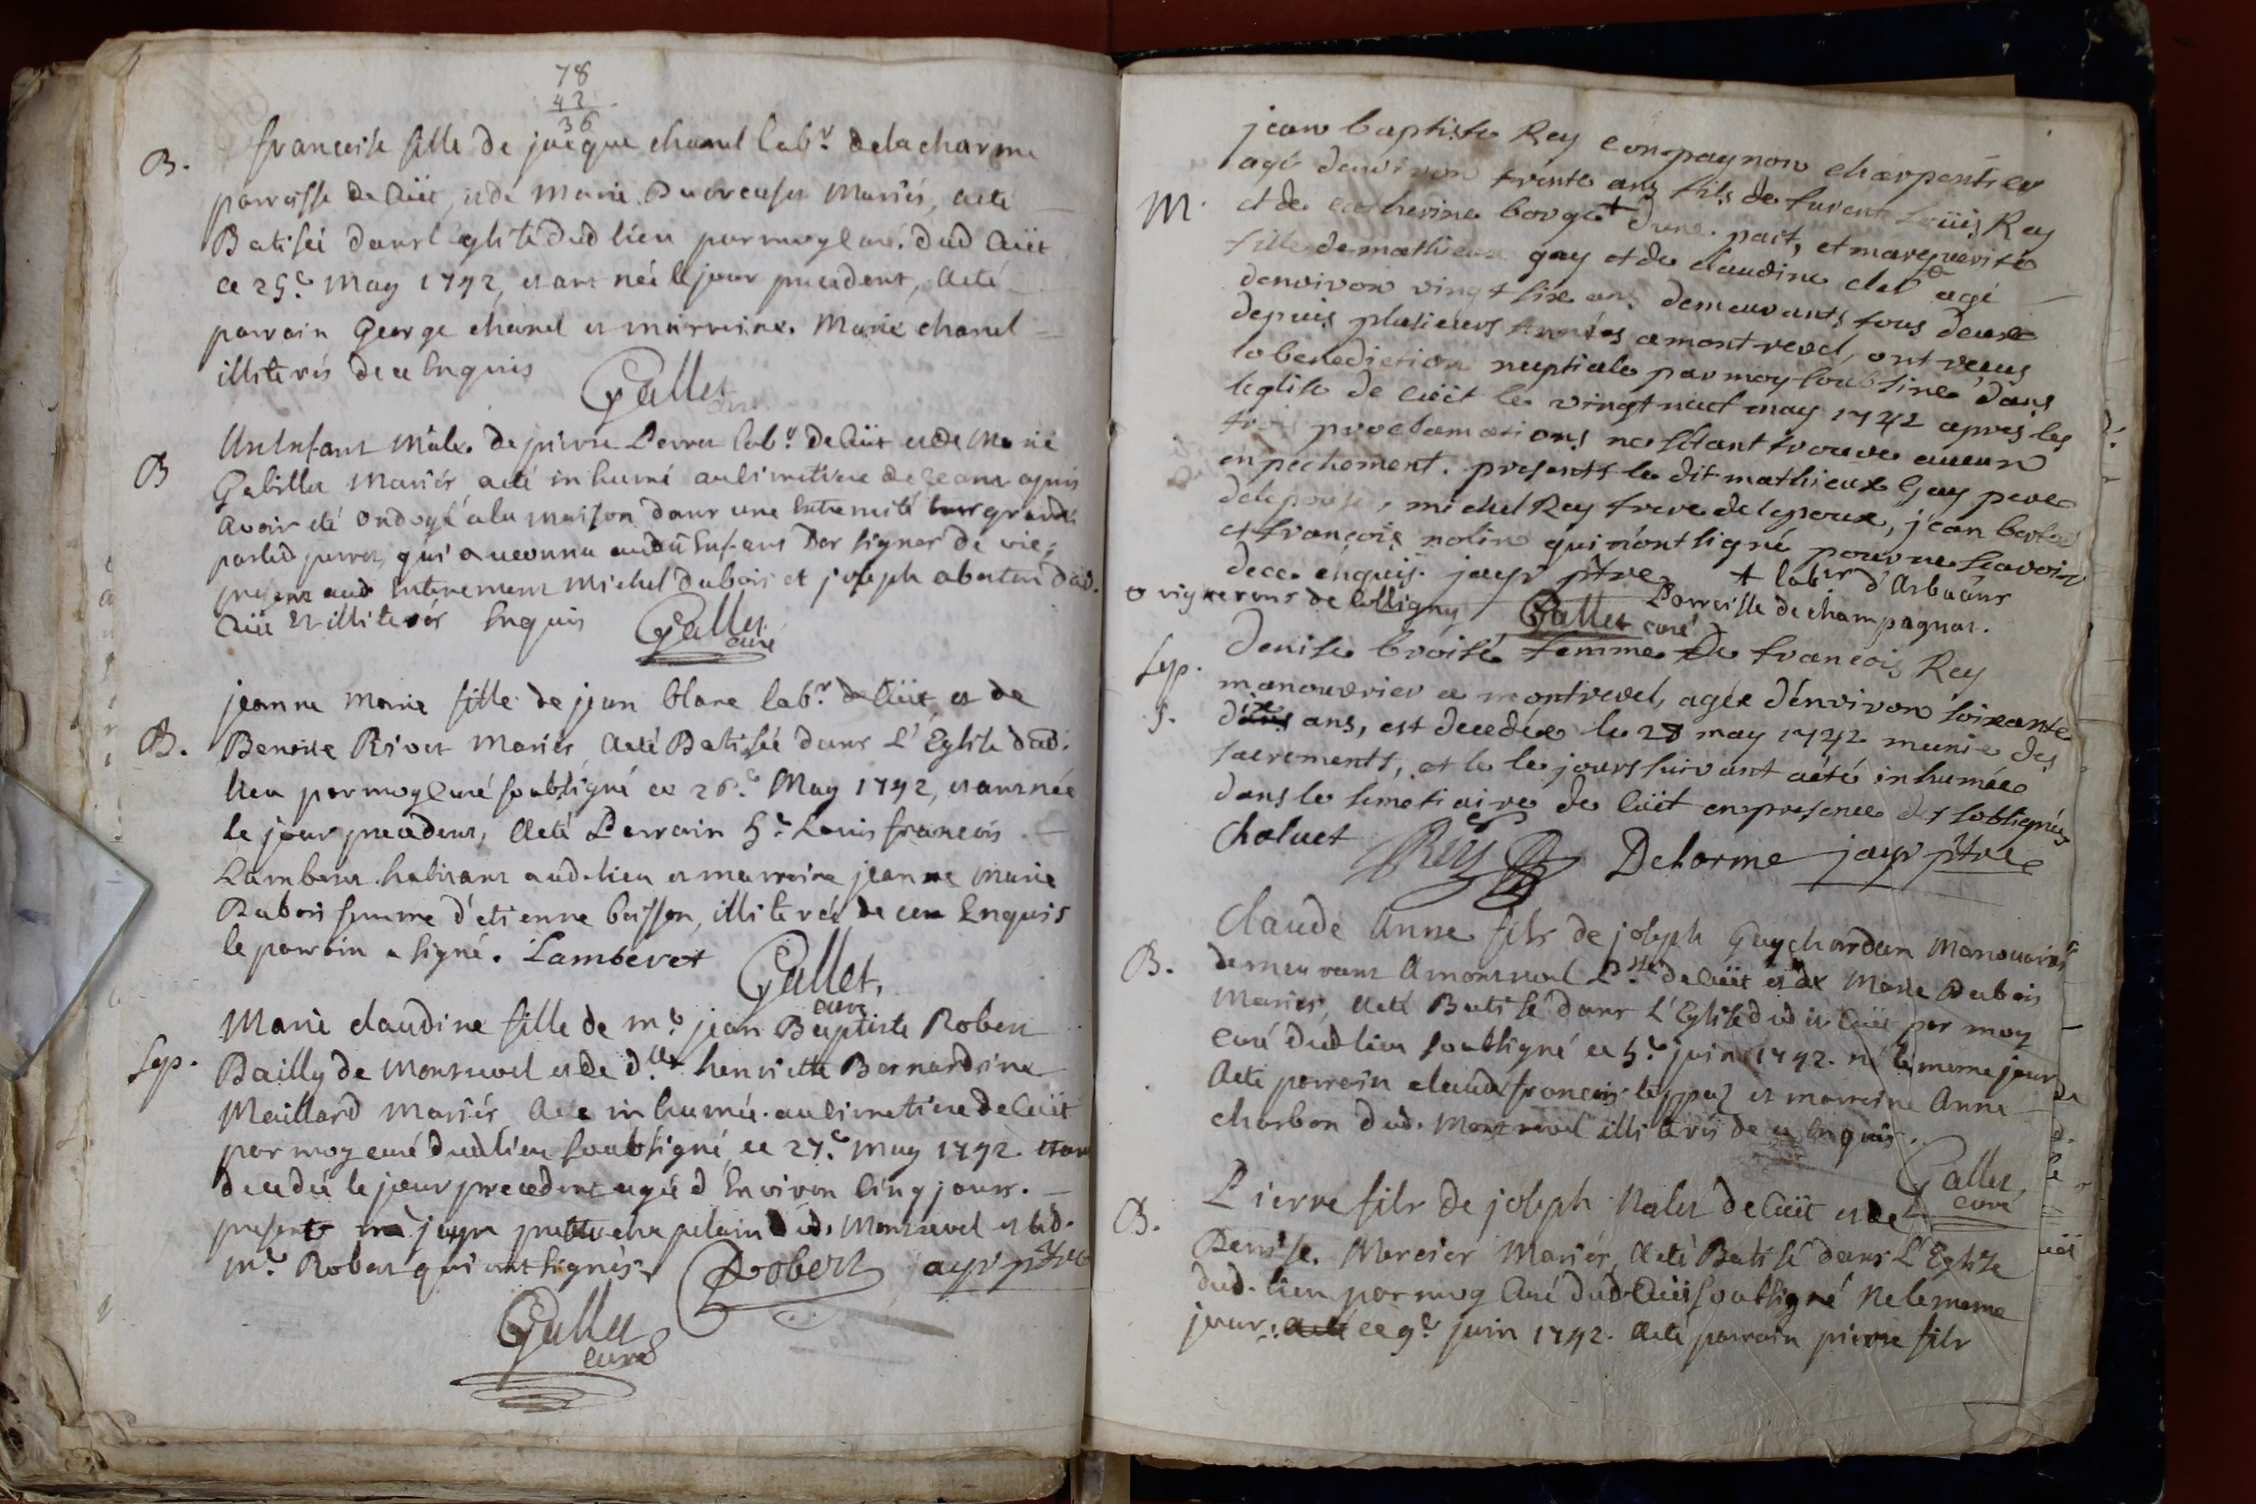 78
42
36
B.
francoise fille de jacque chanel labr. delacharme
parroisse de Cüet, et de Marie Ducreuset Mariés, aeté
Batisée dans l'eglise dud lieu par moy Curé dud Cüet
ce 25e May 1742, etant née le jour precedent, aeté
parrain George chanel et marraine Marie chanel
illiterés de ce Enquis
Gallet
curé
B
Un Enfant Mâle de pierre Perret labr. de Cüet et de Marie
Gabillet Mariés aeté inhumé au cimetiere de ceans apris
avoir eté ondoyé a la maison dans une Extremité grande
par led perret, qui a reconnu aud Enfant Des signes de vie;
present aud Enterement Michel dubois et joseph dud.
Cüet Et illiterés Enquis
Gallet
curé
B.
jeanne Marie fille de jean blanc labr. de Cüet, et de
Benoite Rivet Mariés aeté Batisée dans L'Eglise dud.
lieu par moy Curé soubsigné ce 26e May 1742, etant née
le jour precedent, aeté Parrain Sr. Louis francois
Lamberet habitant aud. lieu et marraine jeanne Marie
Dubois femme d'etienne boisson, illiterée de ce Enquis
le parrain a signé. Lamberet
Gallet,
curé
Sep.
Marie claudine fille de mr. jean Baptiste Robert
Bailly de Montrevel et de dlle henriette Bernardine
Maillard Mariés aeté inhumée au cimetiere de Cüet
par moy curé dud lieu soubsigné, ce 27e May 1742. etant
decedée le jour precedent agée d'Environ Cinq jours.
presents jayr prettre chapelain dud. Montrevel et led.
mr. Robert qui ont signés
Robert jayr ptre
Gallet
curé
M.
jean baptiste Rey compagnon charpentier
agé denviron trente ans fils de furent Loüis Rey
et de catherine borge + d'une part, et marguerite
fille de mathieu gay et de claudine clet agé
denviron vingt sixe ans demeurants tous deux
depuis plusieurs années a montrevel, ont receus
la benediction nuptiale par moy soubsiné dans
leglise de cüet le vingt neuf may 1742 apres les
trois proclamations ne sétant trouvé aucun
enpechement. presents le dit mathieux Gay pere
delepouse, michel Rey frere delepoux, jean
et françois nolin qui n'ont signé pour ne scavoir
de ce enquis. jayr ptre + labr d'Arbuans
vignerons de Colligny Parroisse de champagnat.
Gallet curé
Sep.
S.
Denise broisé femme de francois Rey
manouvrier a montrevel, agée d'environ soixante
dix ans, est decedée le 28 may 1742 munie des
sacrements, et le le jours suivant aété inhumée
dans le simetiaire de Cüet en presence des sobsignés
Chaluet Rey Delorme jayr ptre
B.
Claude Anne fils de joseph Guychardan Manouvrier
demeurant a montrevel Psse de Cüet et de Marie Dubois
Mariés, aeté Batisé dans L'Eglise dud Cüet par moy
Curé dud lieu soubsigné ce 5e juin 1742. né le meme jour
aeté parrain claude francois et marraine Anne
charbon dud. Montrevel illiterés de ce Enquis.
Gallet
curé
B.
Pierre fils de joseph Nalet de Cüet et de
Denise Mercier Mariés, aeté Batisé dans L'Eglise
dud. lieu par moy Curé dud Cüet soubsigné Ne le meme
jour, ce 9e juin 1742. aeté parrain pierre fils